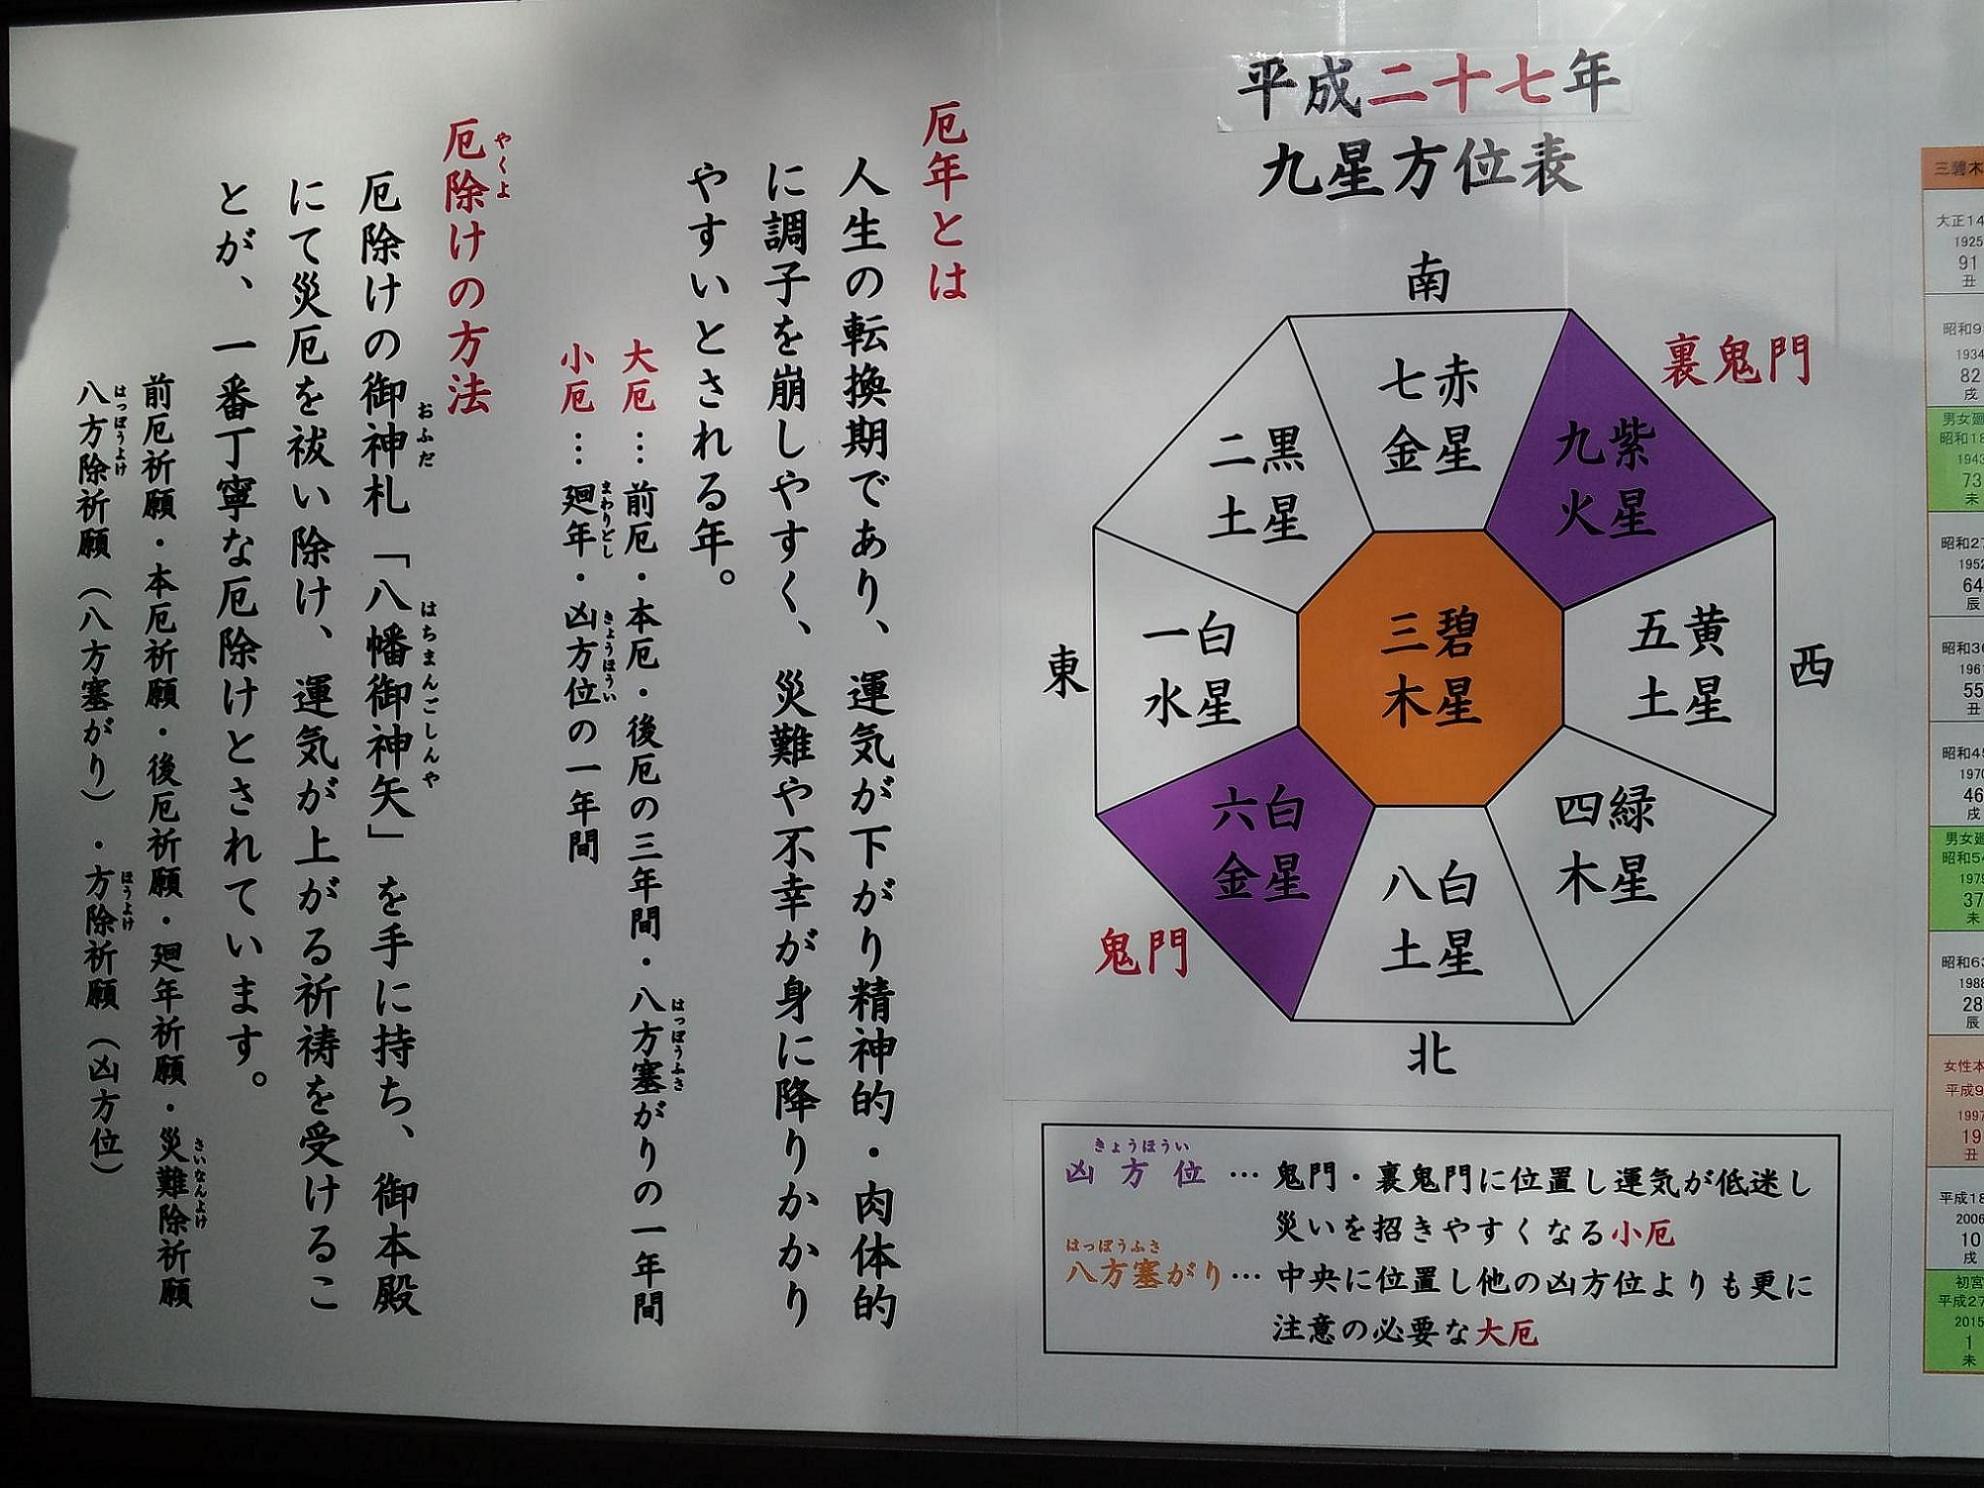 平成二十七年
九星方位表
南
裏鬼門
七赤
金星
九紫
火星
二黒
土星
三碧
木星
五黄
土星
一白
水星
東
西
六白
金星
四緑
木星
八白
土星
鬼門
北
きょうほうい
凶方位…鬼門・裏鬼門に位置し運気が低迷し
災いを招きやすくなる小厄
はっぽうふさ
八方塞がり…中央に位置し他の凶方位よりも更に
注意の必要な大厄
厄年とは
人生の転換期であり、運気が下がり精神的・肉体的
に調子を崩しやすく、災難や不幸が身に降りかかり
やすいとされる年。
はっぽうふさ
大厄…前厄・本厄・後厄の三年間・八方塞がりの一年間
まわりどし きょうほうい
小厄…廻年・凶方位の一年間
やくよ
厄除けの方法
おふだ はちまんごしんや
厄除けの御神札「八幡御神矢」を手に持ち、御本殿
にて災厄を祓い除け、運気が上がる祈祷を受けるこ
とが、一番丁寧な厄除けとされています。
さいなんよけ
前厄祈願・本厄祈願・後厄祈願・廻年祈願・災難除祈願
はっぽうよけ ほうよけ
八方除祈願（八方塞がり）・方除祈願（凶方位）
三碧木
大正14
1925
91
丑
昭和9
1934
82
戌
男女廻
昭和18
1943
73
未
昭和27
1952
64
辰
昭和36
1961
55
丑
昭和45
1970
46
戌
男女廻
昭和54
1979
37
未
昭和63
1988
28
辰
女性本
平成9
1997
19
丑
平成18
2006
10
戌
初宮
平成27
2015
1
未